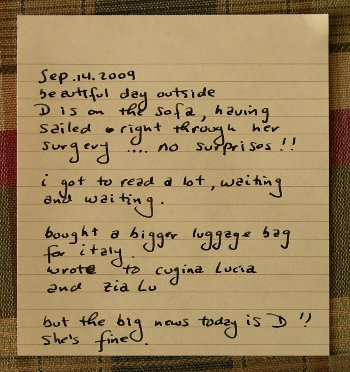 Sep. 14. 2009
beautiful day outside
D is on the sofa, having
sailed right through her
surgery .... no surprises!!
i got to read a lot, waiting
and waiting.
bought a bigger luggage bag
for italy.
wrote to cugina Lucia
and zia Lu
but the big news today is D!!
She's fine.